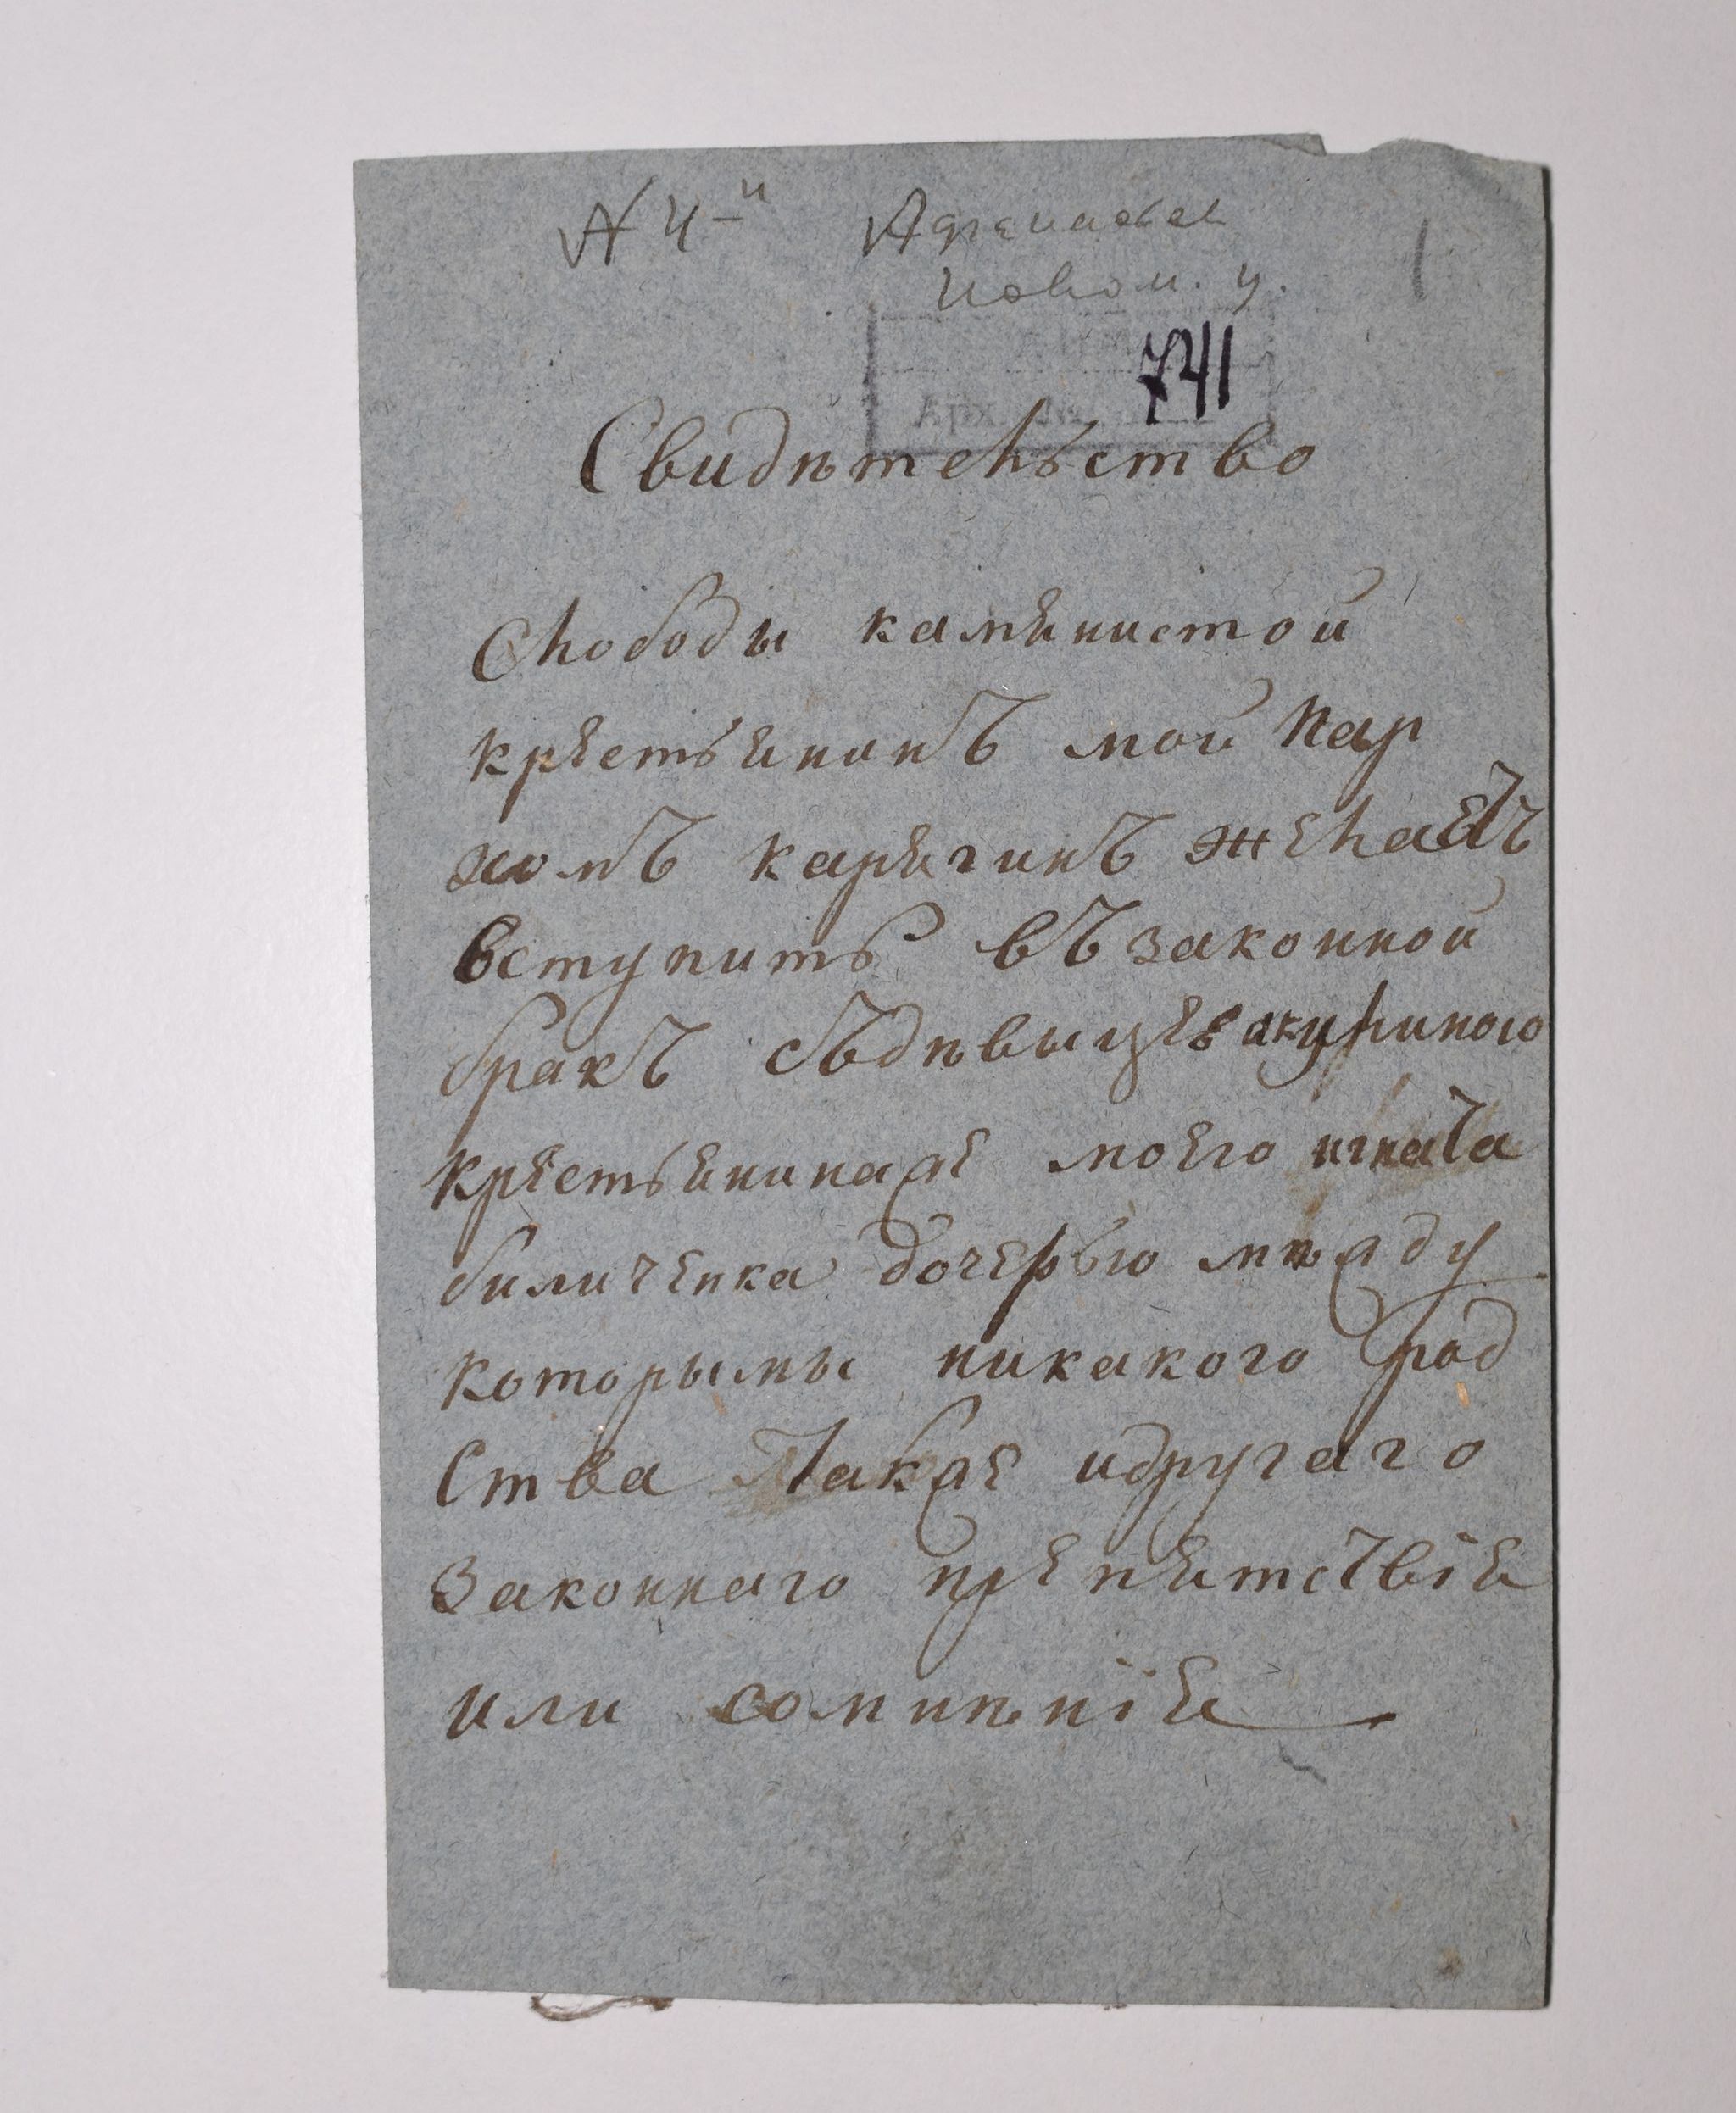 N 4-й
Новом. у.
741
Арх. №
Свидѣтельство
Слободы каменистой
крестьенинъ мой Пар
хомъ карегинъ желаетъ
вступить въ законной
бракъ съдѣвыцее акулиною
крестьенинаже моего игната
биличенка дочерью мѣжду
которымы никакого род
Ства Также идругаго
Законнаго препетствіе
или сомнѣніе